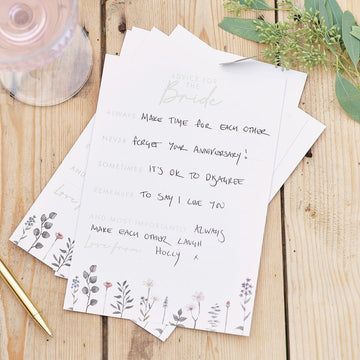 ADVICE FOR
THE
Bride
ALWAYS MAKE TIME FOR EACH OTHER
NEVER FORGET YOUR ANNIVERSARY!
SOMETIMES IT'S OK TO DISAGREE
REMEMBER TO SAY I LOVE YOU
AND MOST IMPORTANTLY ALWAYS
MAKE EACH OTHER LAUGH
Love from HOLLY x